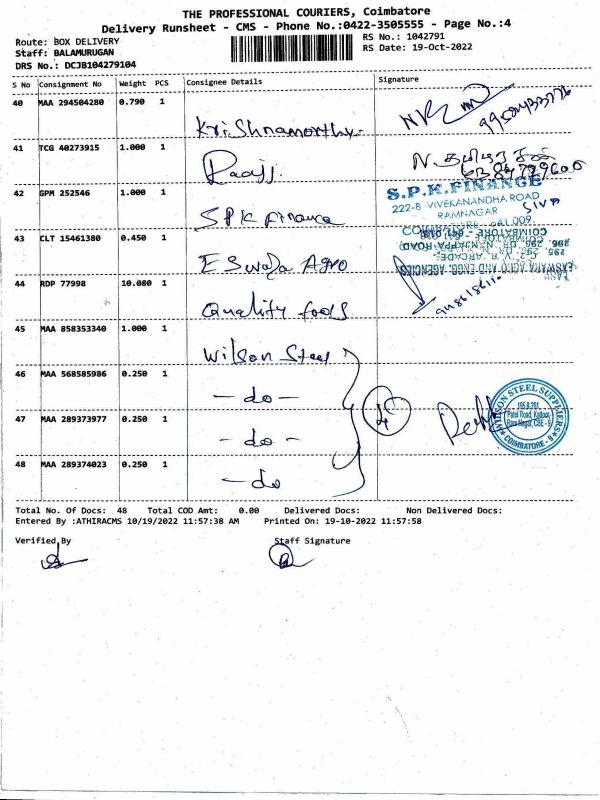 THE PROFESSIONAL COURIERS, Coimbatore
Delivery Runsheet - CMS - Phone No.:0422-3505555 - Page No.:4
Route: BOX DELIVERY
RS No.: 1042791
Staff: BALAMURUGAN
RS Date: 19-Oct-2022
DRS No.: DCJB104279104
S No Consignment No Weight PCS Consignee Details Signature
40 MAA 294504280 0.790 1
Krishnamorthy.
41 TCG 40273915 1.000 1
Raaji.
42 GPM 252546 1.000 1
S.P.K.FINANCE
222-B VIVEKANANDHA ROAD
RAMNAGAR
SIVA
SPK Finance
43 CLT 15461380 0.450 1
ESwara Agro
44 RDP 77998 10.080 1
Quality fools
45 MAA 858353340 1.000 1
Wilson Steel
46 MAA 568585986 0.250 1
- do -
47 MAA 289373977 0.250 1
- do -
WILSON STEEL SUPPLIERS
COIMBATORE - 9
48 MAA 289374023 0.250 1
- do
Total No. Of Docs: 48 Total COD Amt: 0.00 Delivered Docs: Non Delivered Docs:
Entered By :ATHIRACMS 10/19/2022 11:57:38 AM Printed On: 19-10-2022 11:57:58
Verified By Staff Signature